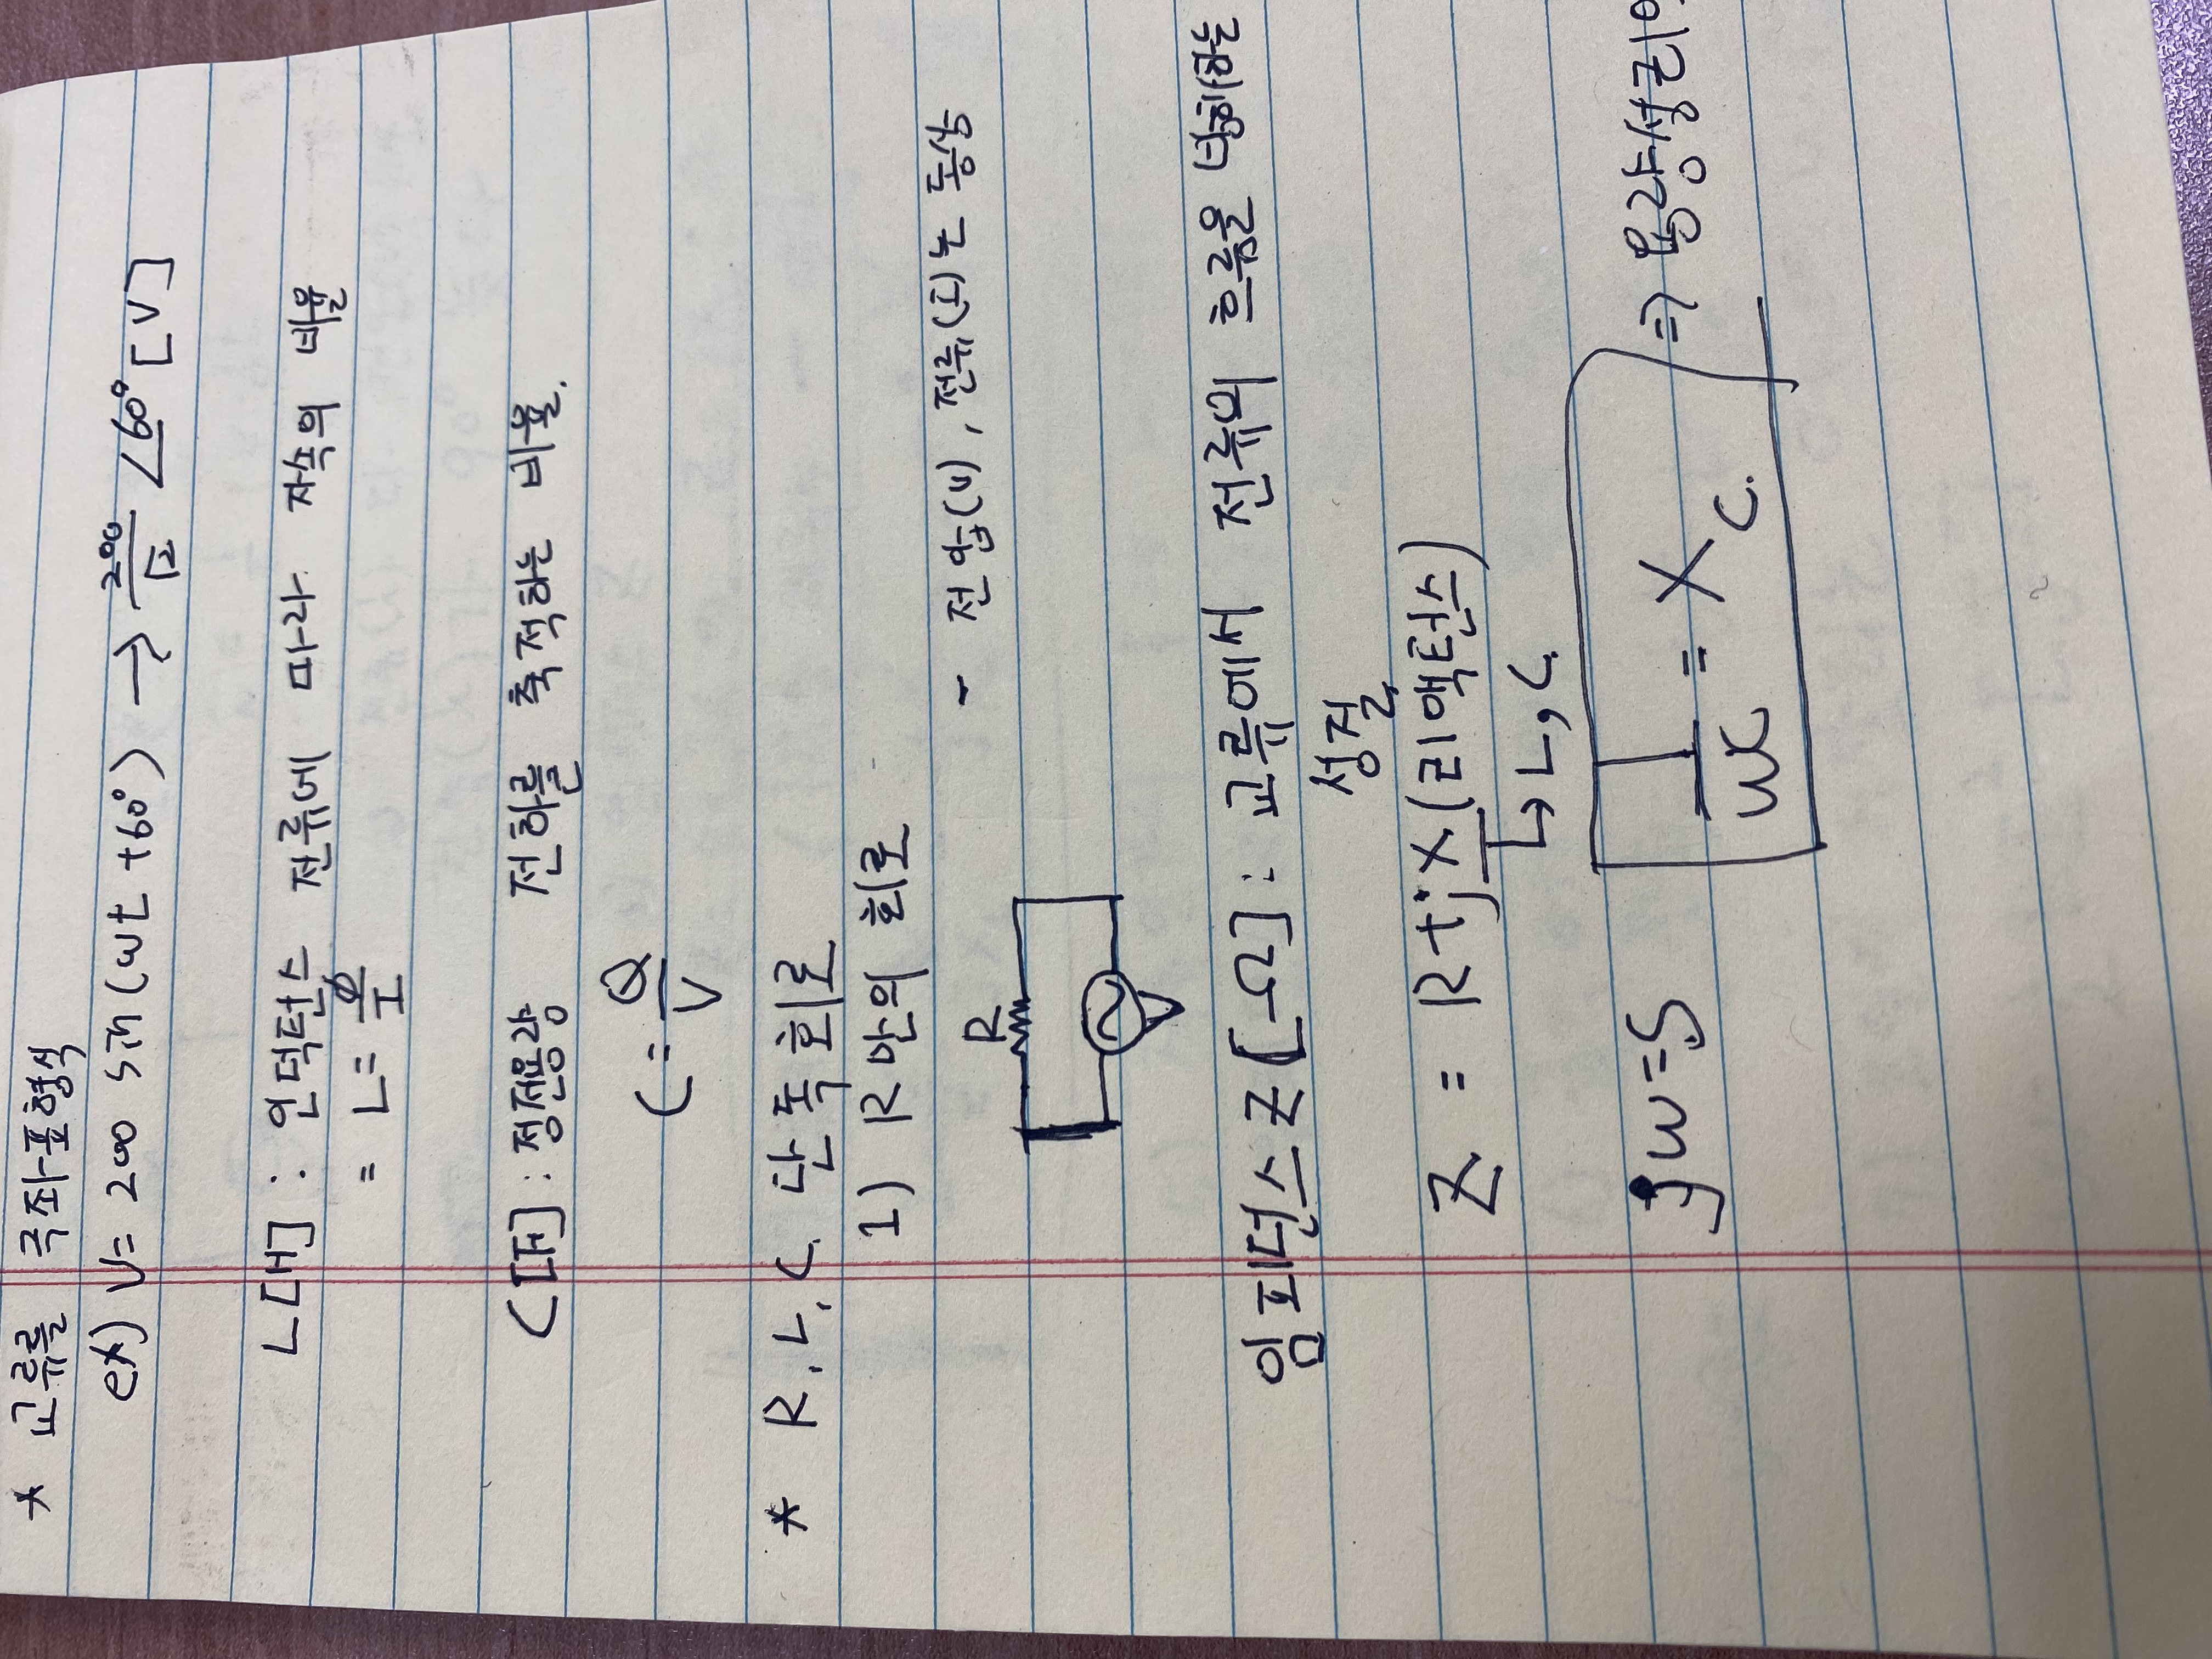 * 교류를 극좌표형식
ex) V= 200 sin(ωt +60°) → 200/√2 ∠60° [V]
L[H] : 인덕턴스 전류에 따라 자속의 비율
= L= Φ/I
C[F] : 정전용량 전하를 축적하는 비율.
C = Q/V
* R.L.C. 단독회로
1) R만의 회로
- 전압(V), 전류(I)는 동상
R
임피던스 Z[Ω] : 교류에서 전류의 흐름을 방해하는
성질
Z = R+jX(리액턴스)
↳ L, C.
jω=S
1/ωC = Xc. ⇒ 용량성리